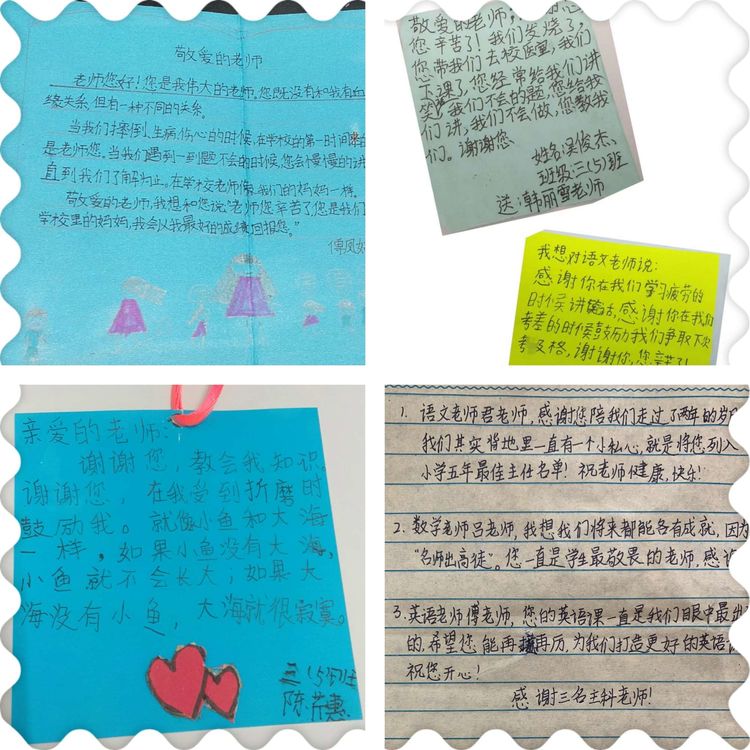 敬爱的老师
老师您好!您是我伟大的老师。您既没有和我有血
缘关系,但有一种不同的关系。
当我们摔倒、生病伤心的时候,在学校的第一时间
是老师您。当我们遇到一到题不会的时候,您会慢慢的讲
直到我们了解为止。在学校老师像我们的妈妈一样。
敬爱的老师,我想和您说“老师您辛苦了您是我们
学校里的妈妈,我会以我最好的成绩回报您。”
傅凤
敬爱的老师:
您辛苦了!我们发烧了,
您带我们去校医室,我们
下课了,您经常给我们讲
笑,我们不会的题,您给我
们讲,我们不会做,您教我
们。谢谢您
姓名:吴俊杰、
班级:三(5)班
送:韩丽雪老师
我想对语文老师说:
感谢你在我们学习疲劳的
时侯讲笑话,感谢你在我们
考差的时侯鼓励我们争取下次
考及格,谢谢你,您辛苦了!
亲爱的老师:
谢谢您,教会我知识。
谢谢您,在我受到折磨时
鼓励我。就像小鱼和大海
一样,如果小鱼没有大海,
小鱼就不会长大;如果大
海没有小鱼,大海就很寂寞。
三(5)班
陈芳惠
1. 语文老师君老师,感谢您陪我们走过了两年的岁月
我们其实背地里一直有一个小私心,就是将您列入
小学五年最佳主任名单!祝老师健康,快乐!
2. 数学老师吕老师,我想我们将来都能各有成就,因为
“名师出高徒”。您一直是学生最敬畏的老师,感谢
3. 英语老师傅老师,您的英语课一直是我们眼中最出
的,希望您能再接再历,为我们打造更好的英语
祝您开心!
感谢三名主科老师!